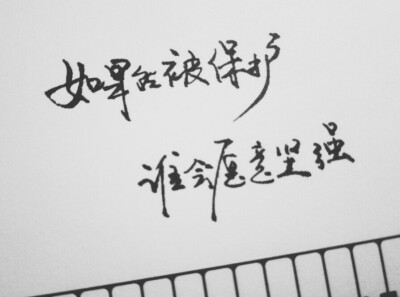 如果能被保护
谁会愿意坚强